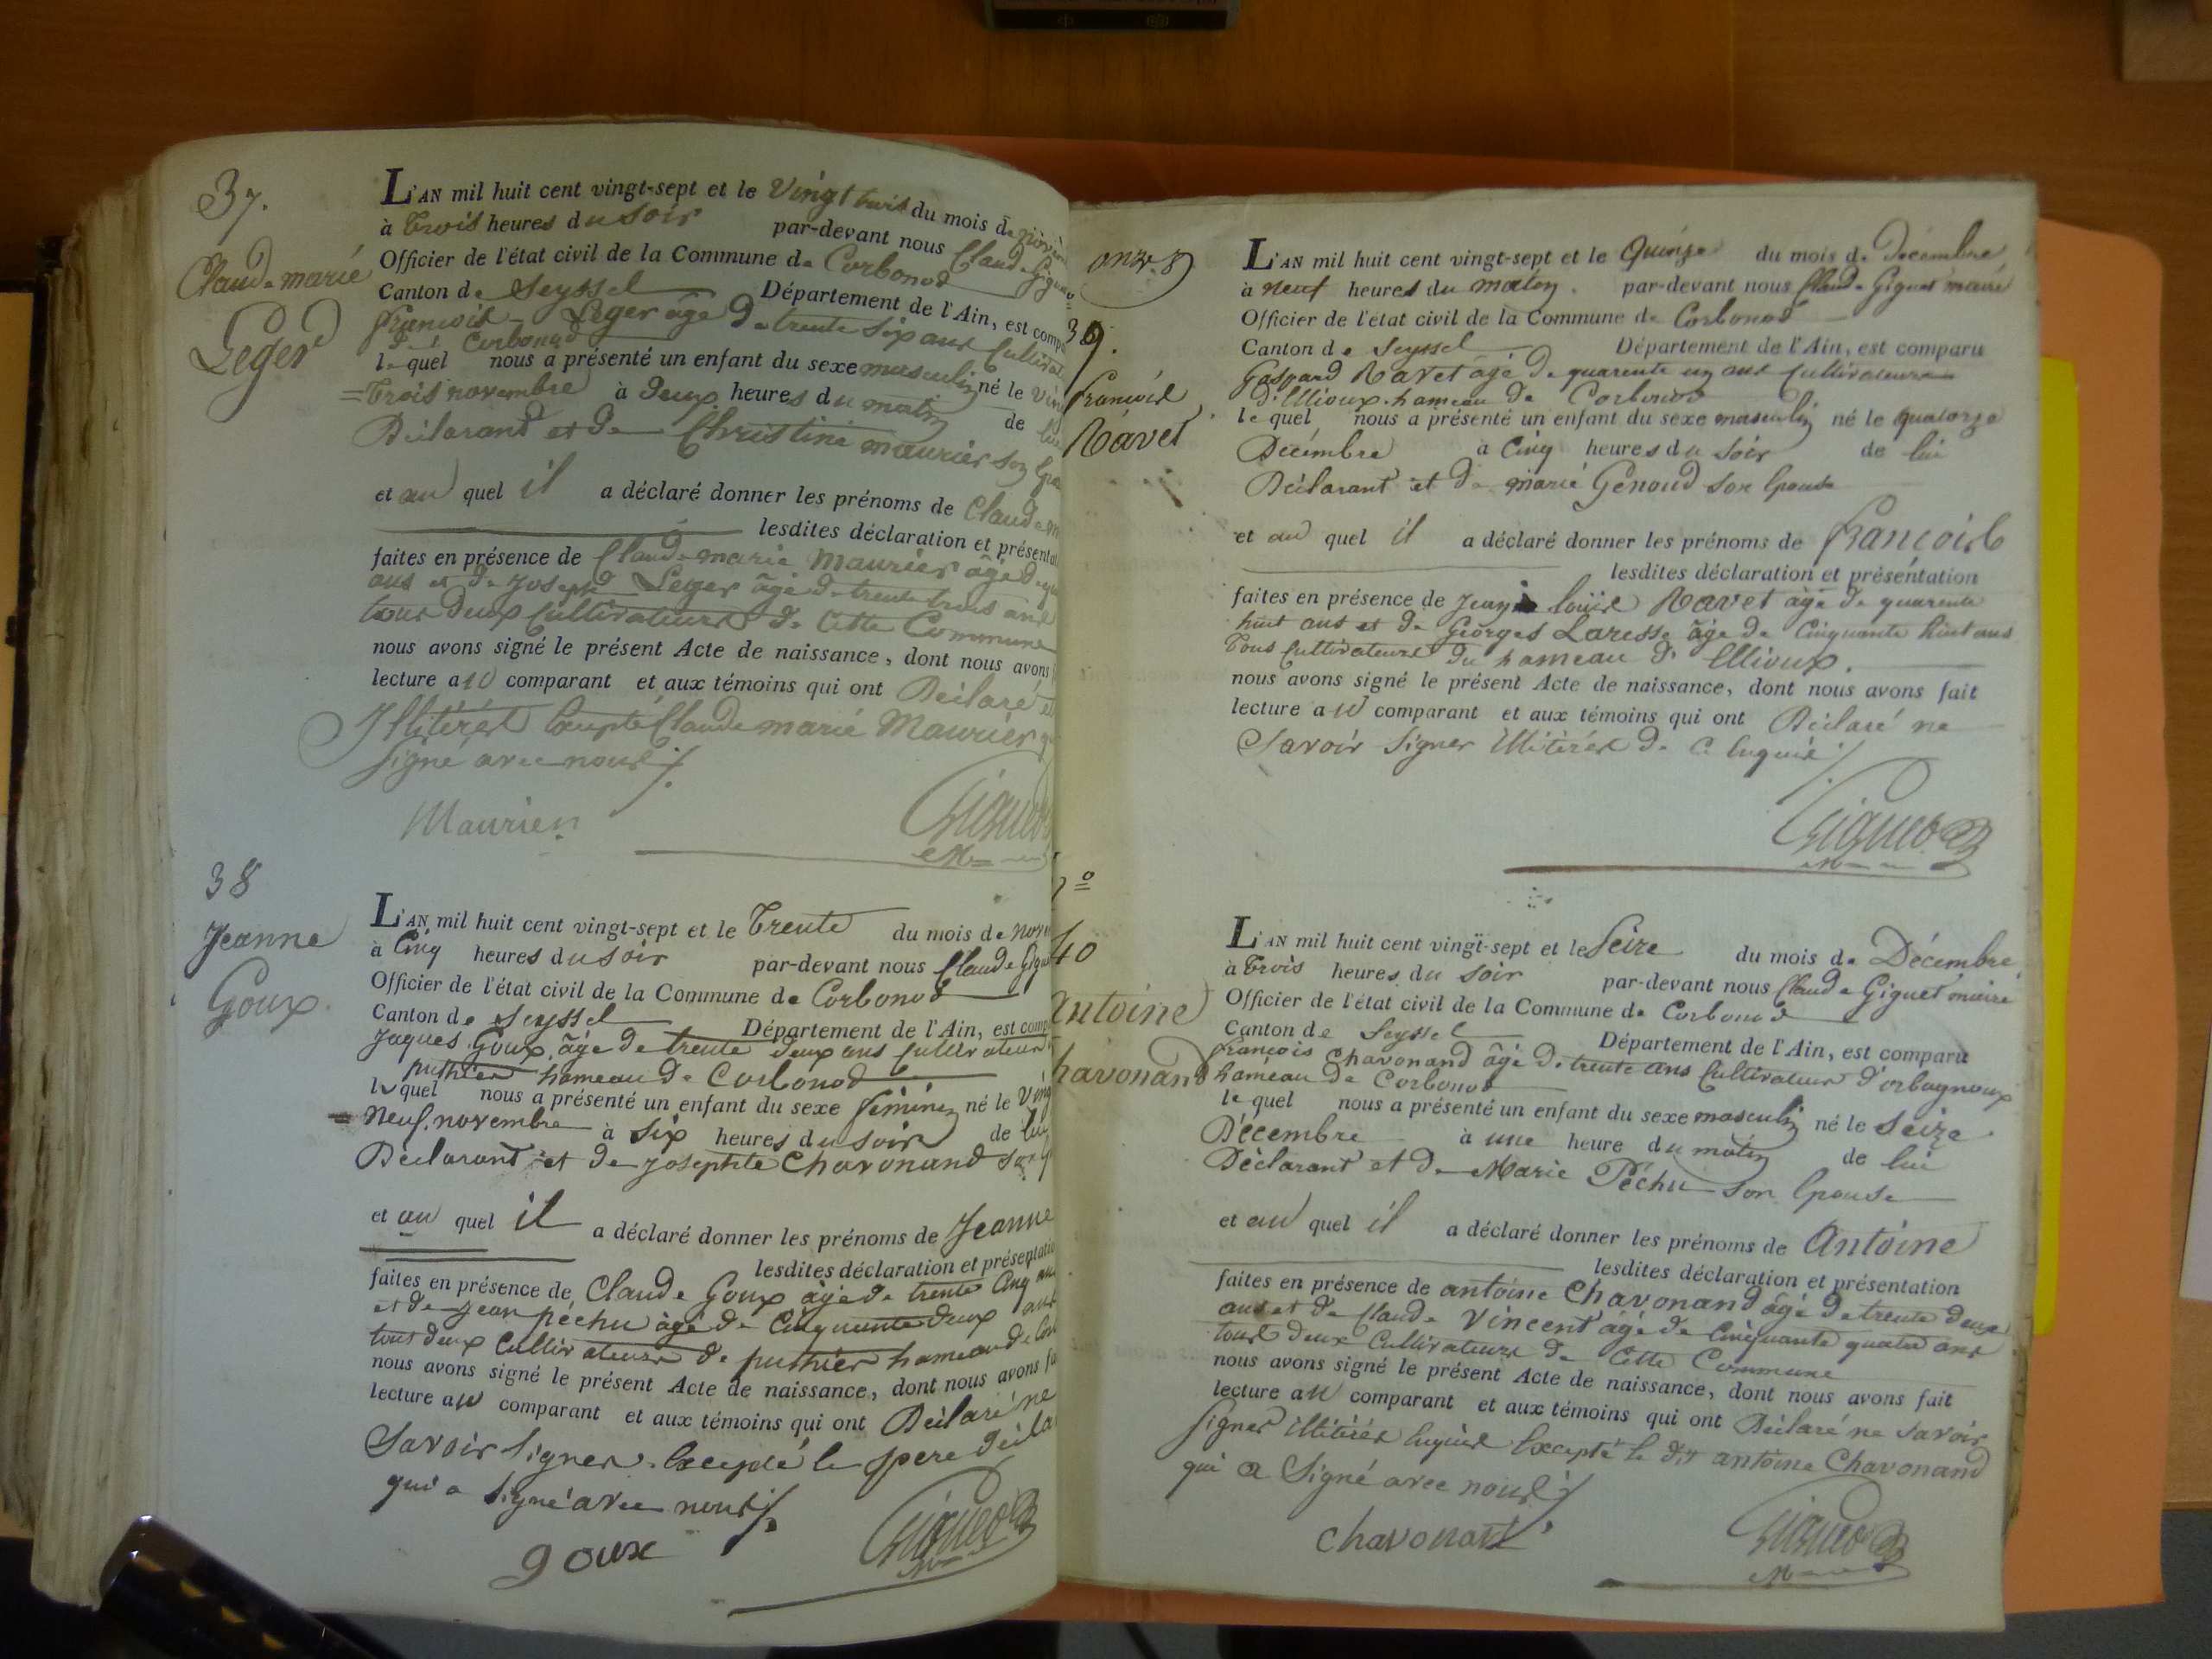 37.
Claude marie
Leger
L'AN mil huit cent vingt-sept et le Vingt trois du mois de
à Trois heures du Soir par-devant nous Claude
Officier de l'état civil de la Commune de Corbonod
Canton de Seyssel Département de l'Ain, est comp
françois Leger âgé de trente six ans Cultivat
de Corbonod
lequel nous a présenté un enfant du sexe masculin né le
=Trois novembre à Deux heures du matin de
Déclarant et de Christine maurier son
et au quel il a déclaré donner les prénoms de Claude
lesdites déclaration et présentat
faites en présence de Claude marie Maurier âgé de
ans et de Joseph Leger âgé de trente trois ans
tous deux Cultivateurs de Cette Commune
nous avons signé le présent Acte de naissance, dont nous avons
lecture au comparant et aux témoins qui ont Déclaré
Illitérés Excepté Claude marie Maurier
Signé avec nous
Maurier
38
Jeanne
Goux.
L'AN mil huit cent vingt-sept et le Trente du mois de nov
à Cinq heures du Soir par-devant nous Claude Gigu
Officier de l'état civil de la Commune de Corbonod
Canton de Seyssel Département de l'Ain, est comp
Jaques Goux, âgé de trente deux ans Cultivateur
puthier hameau de Corbonod
lequel nous a présenté un enfant du sexe féminin né le Ving
= Neuf novembre à Six heures du Soir de lui
Déclarant et de Josephte Chavonand son
et au quel il a déclaré donner les prénoms de Jeanne
lesdites déclaration et présentatio
faites en présence de Claude Goux âgé de trente Cinq ans
et de Jean péchu âgé de Cinquante deux ans
tous deux Cultivateurs de puthier hameau de Cor
nous avons signé le présent Acte de naissance, dont nous avons fa
lecture au comparant et aux témoins qui ont Déclaré ne
Savoir Signer Excepté le père décla
qui a Signé avec nous
goux
Giguet
onze
39.
françois
Ravet
L'AN mil huit cent vingt-sept et le Quinze du mois de Décembre
à neuf heures du matin par-devant nous Claude Giguet maire
Officier de l'état civil de la Commune de Corbonod
Canton de Seyssel Département de l'Ain, est comparu
Gaspard Ravet âgé de quarente un ans Cultivateur
d'Elioux hameau de Corbonod
lequel nous a présenté un enfant du sexe masculin né le quatorze
Décembre à Cinq heures du Soir de lui
Déclarant et de marie Genoud son Epouse
et au quel il a déclaré donner les prénoms de françois
lesdites déclaration et présentation
faites en présence de Jean louis Ravet âgé de quarente
huit ans et de Georges Laresse âgé de Cinquante huit ans
Tous Cultivateurs du hameau d'Elioux.
nous avons signé le présent Acte de naissance, dont nous avons fait
lecture au comparant et aux témoins qui ont Déclaré ne
Savoir Signer Illitérés de Ce Enquis
Giguet
40
Antoine
havonand
L'AN mil huit cent vingt-sept et le Seize du mois de Décembre
à Trois heures du Soir par-devant nous Claude Giguet maire
Officier de l'état civil de la Commune de Corbonod
Canton de Seyssel Département de l'Ain, est comparu
françois Chavonand âgé de trente ans Cultivateur d'orbagnoux
hameau de Corbonod
lequel nous a présenté un enfant du sexe masculin né le Seize
Décembre à une heure du matin de lui
Déclarant et de Marie Péchu son Epouse
et au quel il a déclaré donner les prénoms de Antoine
lesdites déclaration et présentation
faites en présence de antoine Chavonand âgé de trente deux
ans et de Claude Vincent âgé de Cinquante quatre ans
tous deux Cultivateurs de Cette Commune
nous avons signé le présent Acte de naissance, dont nous avons fait
lecture au comparant et aux témoins qui ont Déclaré ne Savoir
Signer Illitérés Enquis Excepté le dit antoine Chavonand
qui a Signé avec nous
Chavonand
Giguet